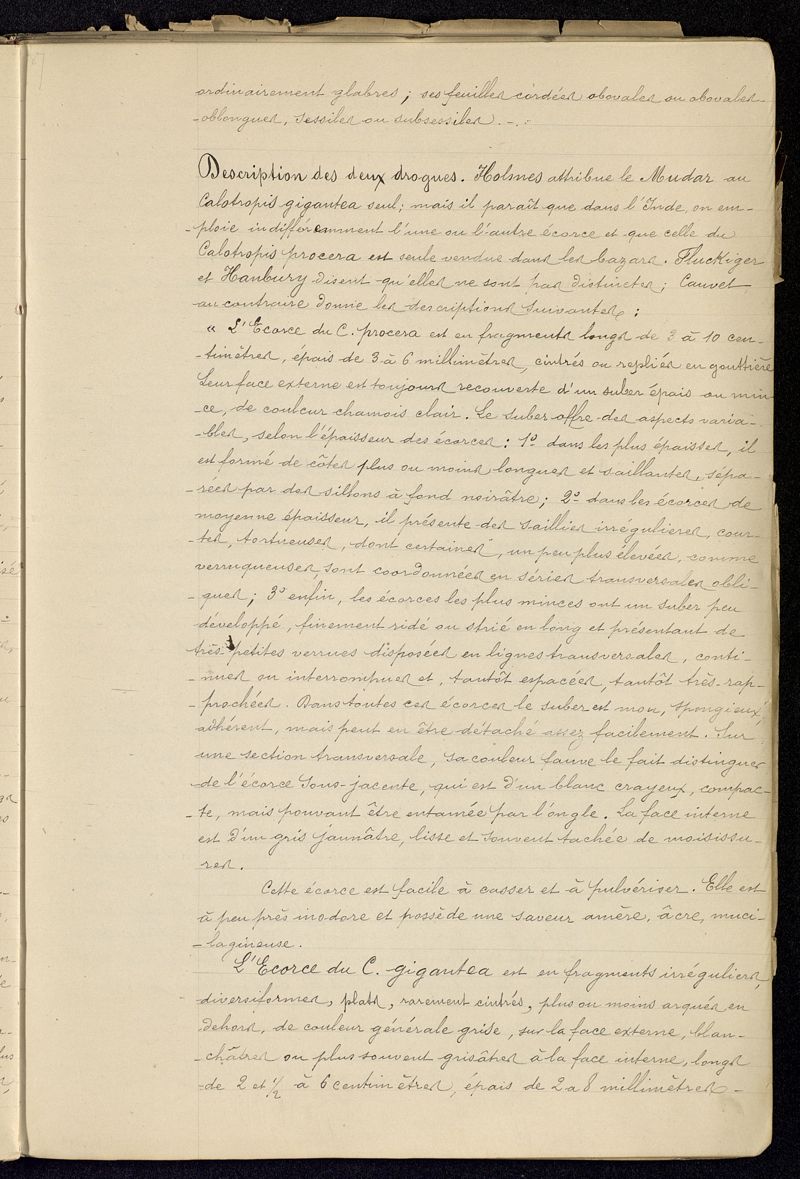 ordinairement glabres; ses feuilles cordées obovales ou obovales-
-oblongues, sessiles ou subsessiles. -.:
Description des deux drogues. Holmes attribue le Mudar au
Calotropis gigantea seul; mais il paraît que dans l'Inde, on em-
-ploie indifféremment l'une ou l'autre écorce et que celle du
Calotropis procera est seule vendue dans les bazars. Fluckiger
et Hanbury disent qu'elles ne sont pas distinctes; Cauvet
au contraire donne les descriptions suivantes:
" L'Ecorce du C. procera est en fragments longs de 3 à 10 cen-
-timètres, épais de 3 à 6 millimètres, cintrés ou repliés en gouttière
Leur face externe est toujours recouverte d'un suber épais ou min
-ce, de couleur chamois clair. Le suber offre des aspects varia-
-bles, selon l'épaisseur des écorces: 1º dans les plus épaisses, il
est formé de côtes plus ou moins longues et saillantes, sépa-
-rées par des sillons à fond noirâtre; 2º dans les écorces de
moyenne épaisseur, il présente des saillies irrégulieres, cour-
-tes, tortueuses, dont certaines, un peu plus élevées, comme
verruqueuses, sont coordonnées en séries transversales obli-
-ques; 3º enfin, les écorces les plus minces ont un suber peu
développé, finement ridé ou strié en long et présentant de
très petites verrues disposées en lignes transversales, conti-
-nues ou interrompues et, tantôt espacées, tantôt très-rap-
-prochées. Dans toutes ces écorces le suber est mou, spongieux,
adhérent, mais peut en être détaché assez facilement. Sur
une section transversale, sa couleur fauve le fait distinguer
de l'écorce sous-jacente, qui est d'un blanc crayeux, compac-
-te, mais pouvant être entamée par l'ongle. La face interne
est d'un gris jaunâtre, lisse et souvent tachée de moisissu-
res.
Cette écorce est facile à casser et à pulvériser. Elle est
à peu près inodore et possède une saveur amère, âcre, muci-
-lagineuse.
L'Ecorce du C. gigantea est en fragments irréguliers,
diversiformes, plats, rarement cintrés, plus ou moins arqués en
dehors, de couleur générale grise, sur la face externe, blan-
-châtres ou plus souvent grisâtres à la face interne, longs
de 2 et 1/2 à 6 centimètres, épais de 2 a 8 millimètres-